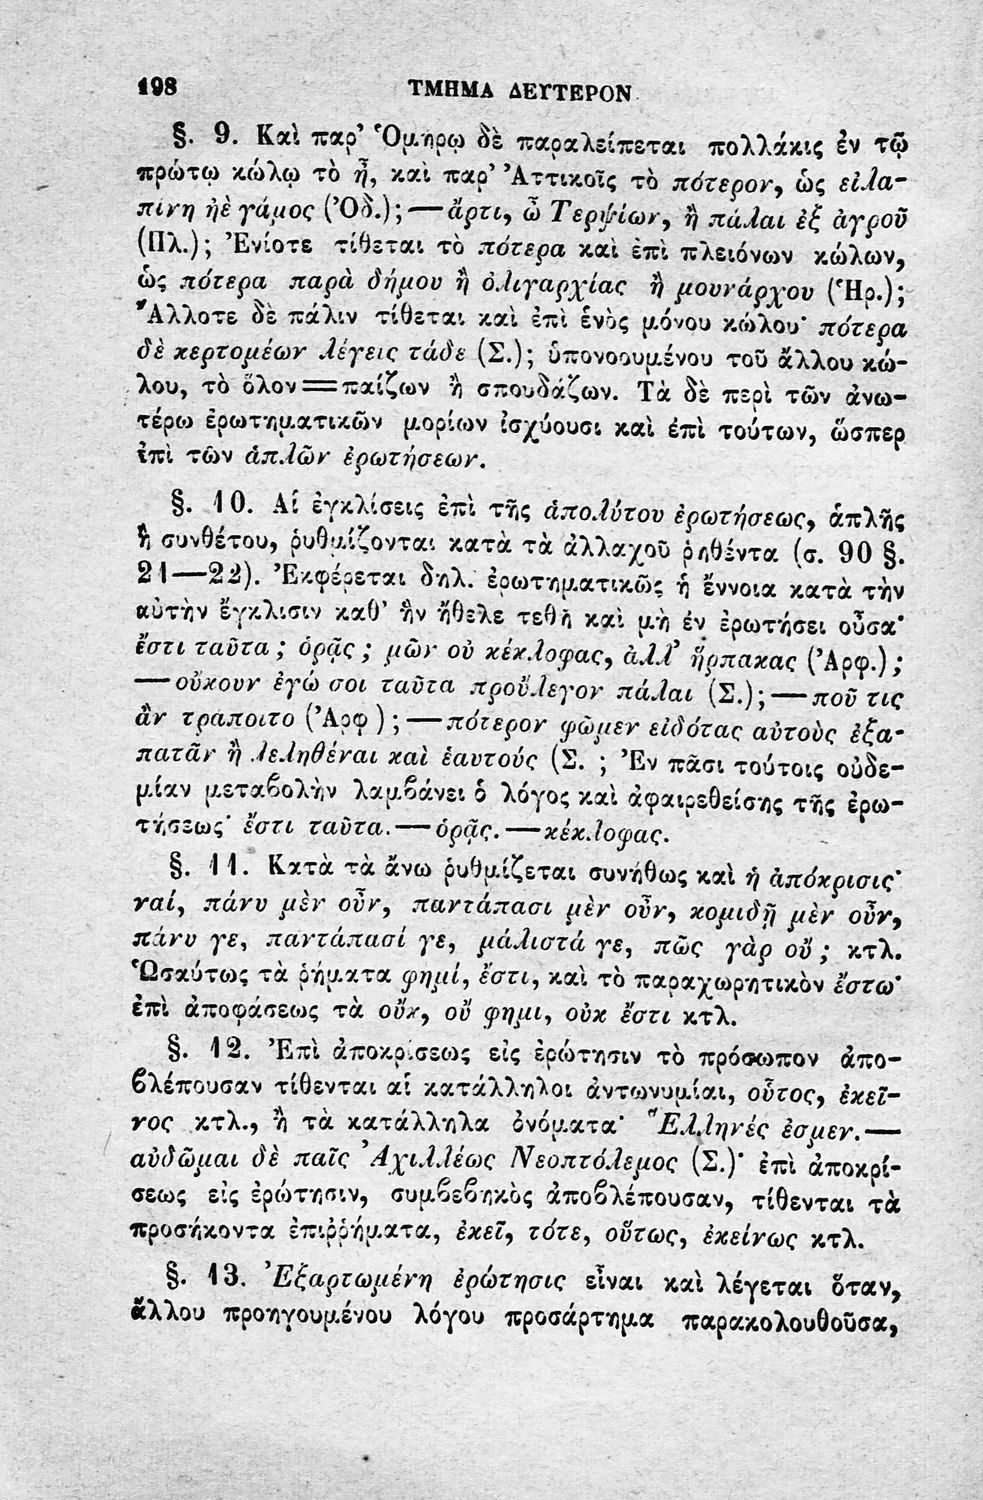 198 ΤΜΗΜΑ ΔΕΥΤΕΡΟΝ
§. 9. Καὶ παρ’ Ὁμηρῳ δὲ παραλείπεται πολλάκις ἐν τῷ
πρώτῳ κώλῳ τὸ ἦ, καὶ παρ’ Ἀττικοῖς τὸ πότερον, ὡς εἰλα-
πίνη ἠὲ γάμος (Ὀδ.);—ἄρτι, ὦ Τερψίων, ἢ πάλαι ἐξ ἀγροῦ
(Πλ.); Ἐνίοτε τίθεται τὸ πότερα καὶ ἐπὶ πλειόνων κώλων,
ὡς πότερα παρὰ δήμου ἢ ὀλιγαρχίας ἢ μουνάρχου (Ἡρ.);
Ἄλλοτε δὲ πάλιν τίθεται καὶ ἐπὶ ἑνὸς μόνου κώλου· πότερα
δὲ κερτομέων λέγεις τάδε (Σ.); ὑπονοουμένου τοῦ ἄλλου κώ-
λου, τὸ ὅλον=παίζων ἢ σπουδάζων. Τὰ δὲ περὶ τῶν ἀνω-
τέρω ἐρωτηματικῶν μορίων ἰσχύουσι καὶ ἐπὶ τούτων, ὥσπερ
ἐπὶ τῶν ἁπλῶν ἐρωτήσεων.
§. 10. Αἱ ἐγκλίσεις ἐπὶ τῆς ἀπολύτου ἐρωτήσεως, ἁπλῆς
ἢ συνθέτου, ῥυθμίζονται κατὰ τὰ ἀλλαχοῦ ῥηθέντα (σ. 90 §.
21—22). Ἐκφέρεται δηλ. ἐρωτηματικῶς ἡ ἔννοια κατὰ τὴν
αὐτὴν ἔγκλισιν καθ’ ἣν ἤθελε τεθῆ καὶ μὴ ἐν ἐρωτήσει οὖσα·
ἔστι ταῦτα; ὁρᾷς; μῶν οὐ κέκλοφας, ἀλλ’ ἥρπακας (Ἀρφ.);
—οὔκουν ἐγώ σοι ταῦτα προὔλεγον πάλαι (Σ.);—ποῦ τις
ἂν τράποιτο (Ἀρφ);—πότερον φῶμεν εἰδότας αὐτοὺς ἐξα-
πατᾶν ἢ λεληθέναι καὶ ἑαυτούς (Σ. ; Ἐν πᾶσι τούτοις οὐδε-
μίαν μεταβολὴν λαμβάνει ὁ λόγος καὶ ἀφαιρεθείσης τῆς ἐρω-
τήσεως· ἔστι ταῦτα.—ὁρᾷς.—κέκλοφας.
§. 11. Κατὰ τὰ ἄνω ῥυθμίζεται συνήθως καὶ ἡ ἀπόκρισις·
ναί, πάνυ μὲν οὖν, παντάπασι μὲν οὖν, κομιδῇ μὲν οὖν,
πάνυ γε, παντάπασί γε, μάλιστά γε, πῶς γὰρ οὔ; κτλ.
Ὡσαύτως τὰ ῥήματα φημί, ἔστι, καὶ τὸ παραχωρητικὸν ἔστω·
ἐπὶ ἀποφάσεως τὰ οὔκ, οὔ φημι, οὐκ ἔστι κτλ.
§. 12. Ἐπὶ ἀποκρίσεως εἰς ἐρώτησιν τὸ πρόσωπον ἀπο-
βλέπουσαν τίθενται αἱ κατάλληλοι ἀντωνυμίαι, οὗτος, ἐκεῖ-
νος κτλ., ἢ τὰ κατάλληλα ὀνόματα· Ἕλληνές ἐσμεν.—
αὐδῶμαι δὲ παῖς Ἀχιλλέως Νεοπτόλεμος (Σ.)· ἐπὶ ἀποκρί-
σεως εἰς ἐρώτησιν, συμβεβηκὸς ἀποβλέπουσαν, τίθενται τὰ
προσήκοντα ἐπιῤῥήματα, ἐκεῖ, τότε, οὕτως, ἐκείνως κτλ.
§. 13. Ἐξαρτωμένη ἐρώτησις εἶναι καὶ λέγεται ὅταν,
ἄλλου προηγουμένου λόγου προσάρτημα παρακολουθοῦσα,